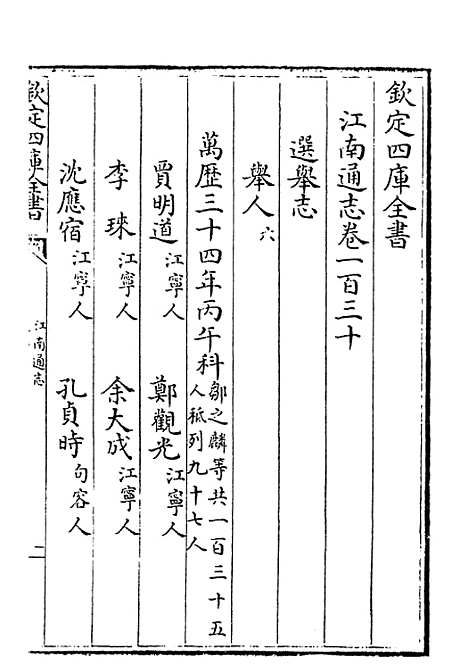 欽定四庫全書
江南通志卷一百三十
選舉志
舉人六
萬歷三十四年丙午科鄒之麟等共一百三十五人祗列九十七人
賈明道江寧人 鄭觀光江寧人
李珠江寧人 余大成江寧人
沈應宿江寧人 孔貞時句容人
欽定四庫全書
江南通志